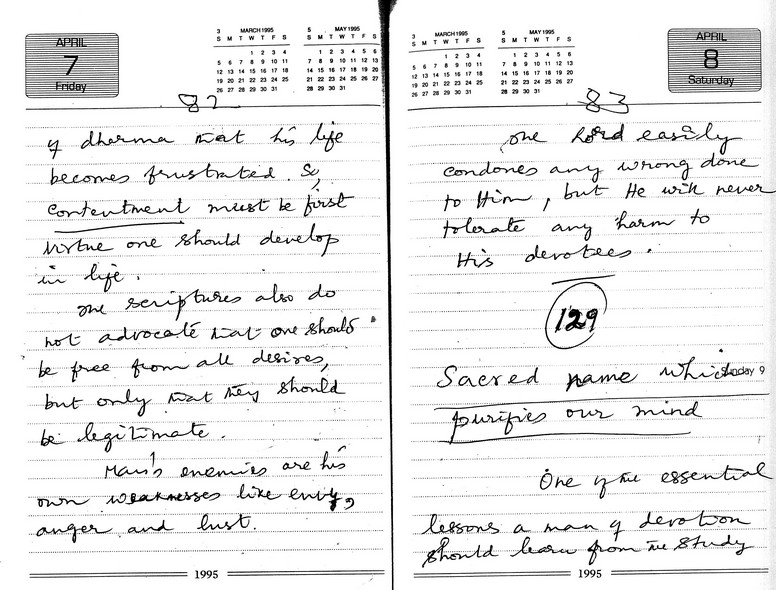 APRIL
7
Friday
3 MARCH 1995
S M T W T F S
1 2 3 4
5 6 7 8 9 10 11
12 13 14 15 16 17 18
19 20 21 22 23 24 25
26 27 28 29 30 31
5 MAY 1995
S M T W T F S
1 2 3 4 5 6
7 8 9 10 11 12 13
14 15 16 17 18 19 20
21 22 23 24 25 26 27
28 29 30 31
82
of dharma that his life
becomes frustrated. So,
contentment must be first
virtue one should develop
in life.
The scriptures also do
not advocate that one should
be free from all desires,
but only that they should
be legitimate.
Man's enemies are his
own weaknesses like envy,
anger and lust.
1995
3 MARCH 1995
S M T W T F S
1 2 3 4
5 6 7 8 9 10 11
12 13 14 15 16 17 18
19 20 21 22 23 24 25
26 27 28 29 30 31
5 MAY 1995
S M T W T F S
1 2 3 4 5 6
7 8 9 10 11 12 13
14 15 16 17 18 19 20
21 22 23 24 25 26 27
28 29 30 31
APRIL
8
Saturday
83
The Lord easily
condones any wrong done
to Him, but He will never
tolerate any harm to
His devotees.
129
Sacred name which
Sunday 9
purifies our mind
One of the essential
lessons a man of devotion
should learn from the study
1995